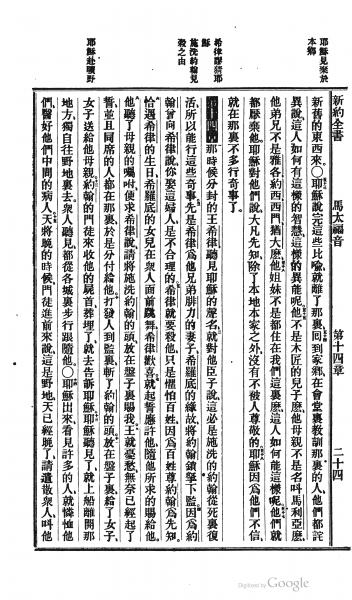 新約全書　馬太福音　第十四章　二十四
耶穌見棄於本鄉
希律膠辭耶穌
施洗約翰見殺之由
耶穌赴曠野
新舊的東西來〇耶穌說完這些比喻就離了那裏回到家鄉在會堂裏教訓那裏的人他們都詫
異說這人如何有這樣的智慧這樣的異能呢他不是木匠的兒子麽他母親不是名叫馬利亞麽
他弟兄不是雅各約西西門猶大麽他姐妹不是都住在我們這裏麽這人如何能這樣呢他們就
都厭棄他耶穌對他們說大凡先知除了本地本家之外沒有不被人尊敬的耶穌因爲他們不信
就在那裏不多行奇事了
第十四章那時候分封的王希律聽見耶穌的聲名就對他臣子說這必是施洗的約翰從死裏復
活所以能行這些奇事先是希律爲他兄弟腓力的妻子希羅底的緣故將約翰鎖拏下監因爲約
翰曾向希律說你娶這婦人是不合理的希律就要殺他只是懼怕百姓因爲百姓尊約翰爲先知
恰遇希律的生日希羅底的女兒在衆人面前跳舞希律歡喜就起誓應許他隨他所求的賜給他
他聽了母親的囑咐便求希律說請將施洗約翰的頭放在盤子裏賜我王就憂愁無奈已經起了
誓並且同席的人都在那裏於是分付給他打發人到監裏斬了約翰的頭放在盤子裏給了女子
女子送給他母親約翰的門徒來收他的屍首葬埋了就去告訴耶穌耶穌聽見了就上船離開那
地方獨自往野地裏去衆人聽見都從各城裏步行跟隨他〇耶穌出來看見許多的人就憐恤他
們醫好他們中間的病人天將晚的時候門徒進前來說這是野地天已經晚了請遣散衆人叫他
Digitized by Google